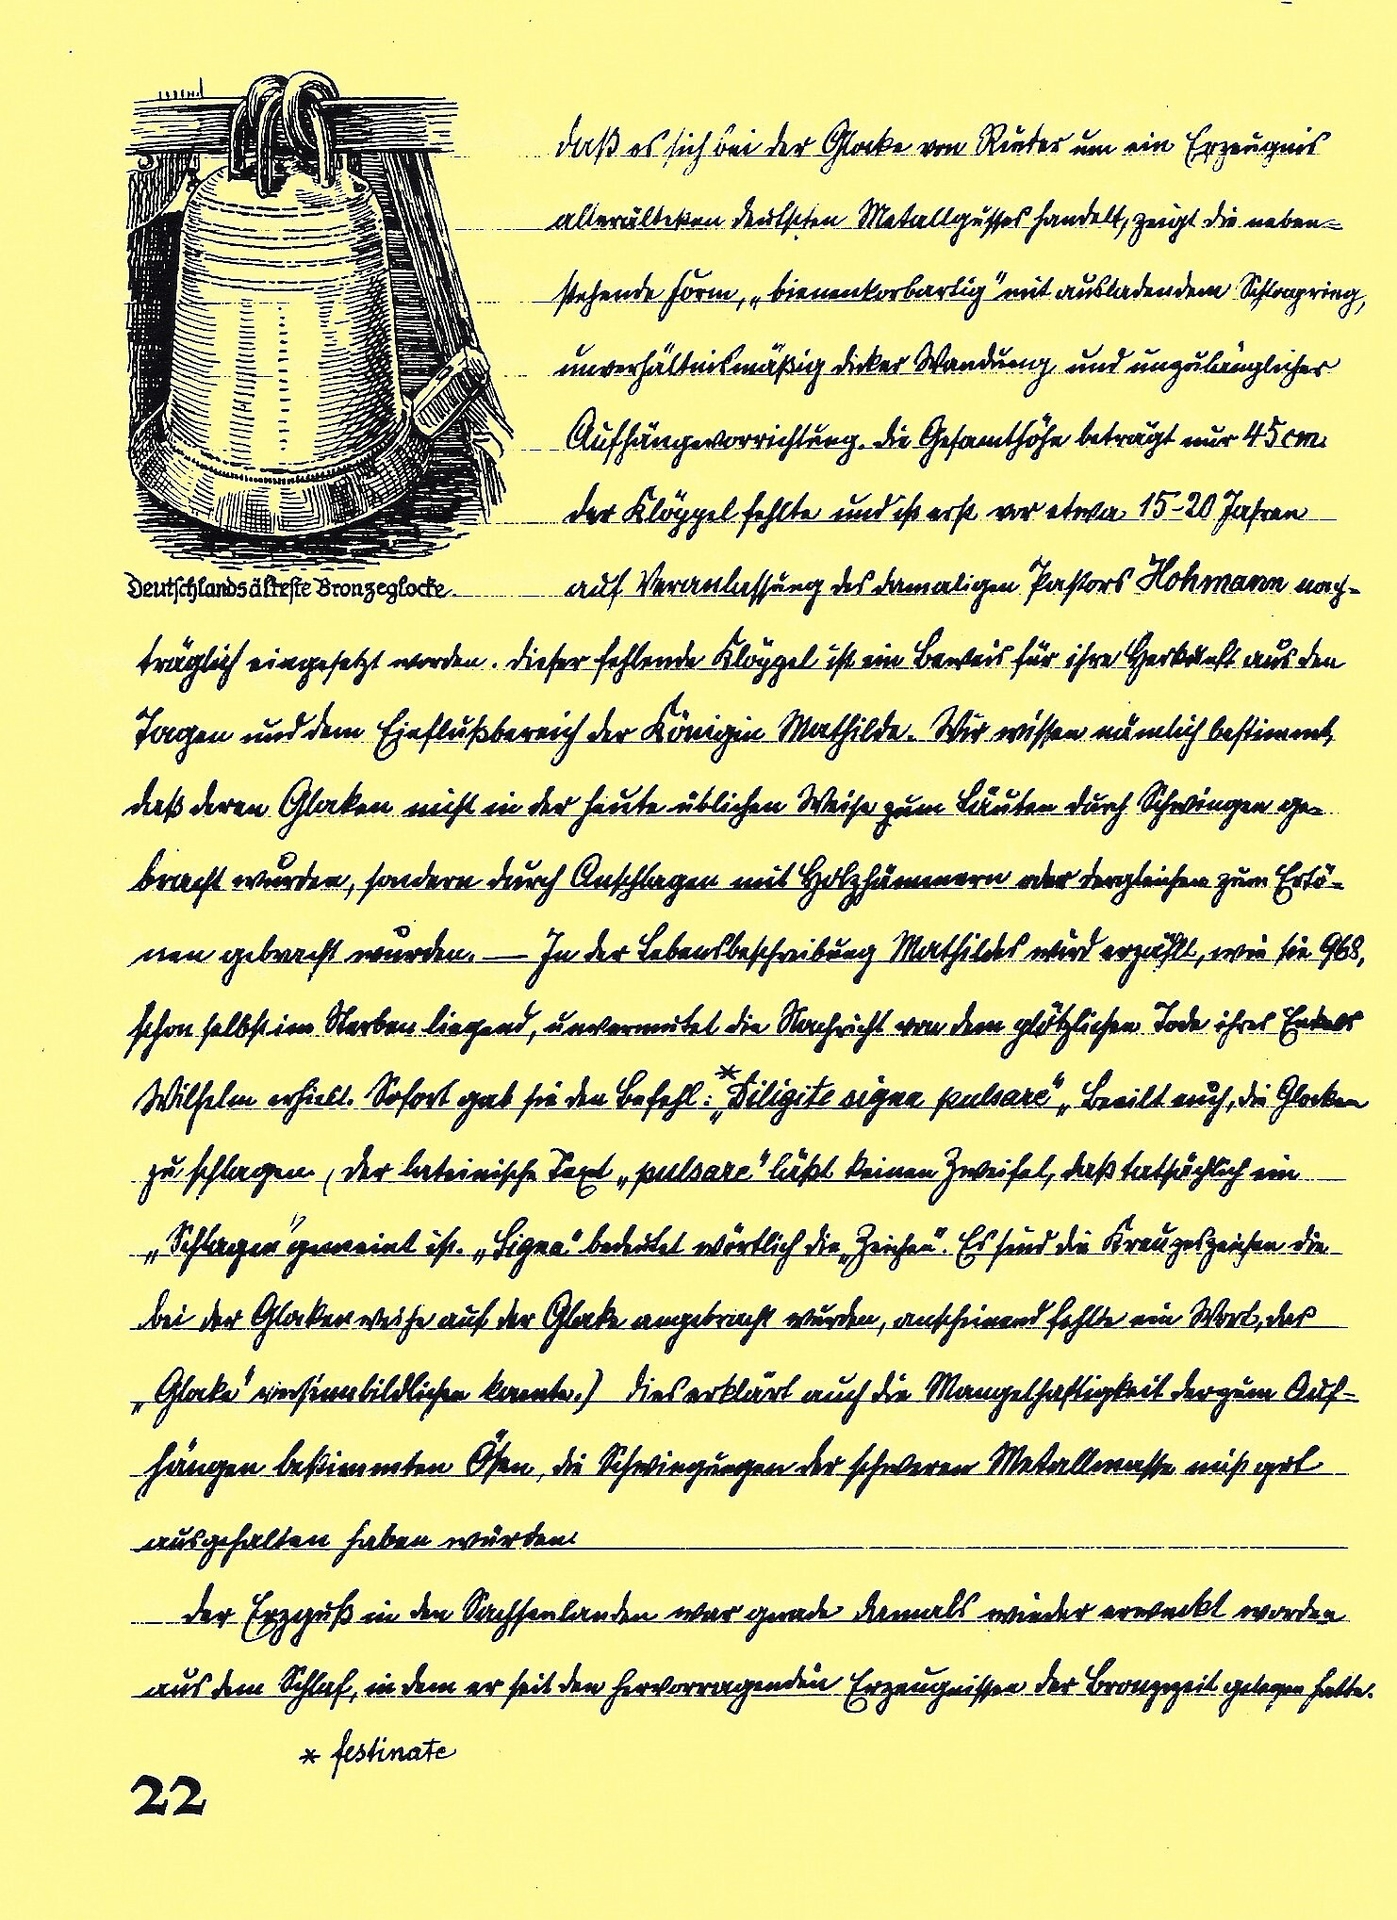 daß es sich bei der Glocke von Rieder um ein Erzeugnis
allerältesten deutschen Metallgusses handelt, zeigt die neben-
stehende Form, „bienenkorbartig" mit ausladendem Schlagring,
unverhältnismäßig dicker Wandung und unzulänglicher
Aufhängevorrichtung. Die Gesamthöhe beträgt nur 45 cm.
Der Klöppel fehlte und ist erst vor etwa 15-20 Jahren
Deutschlands älteste Bronzeglocke.
auf Veranlassung des damaligen Pastors Hohmann nach-
träglich eingesetzt worden. Dieser fehlende Klöppel ist ein Beweis für ihre Herkunft aus den
Tagen und dem Einflußbereich der Königin Mathilde. Wir wissen nämlich bestimmt,
daß deren Glocken nicht in der heute üblichen Weise zum Läuten durch Schwingen ge-
bracht wurden, sondern durch Anschlagen mit Holzhämmern oder dergleichen zum Ertö-
nen gebracht wurden. — In der Lebensbeschreibung Mathildes wird erzählt, wie sie 968,
schon selbst im Sterben liegend, unvermutet die Nachricht von dem plötzlichen Tode ihres Enkels
Wilhelm erhielt. Sofort gab sie den Befehl: *„Diligite signa pulsare" „Beeilt euch, die Glocken
zu schlagen. (Der lateinische Text „pulsare" läßt keinen Zweifel, daß tatsächlich ein
„Schlagen" gemeint ist. „Signa" bedeutet wörtlich die „Zeichen". Es sind die Kreuzeszeichen die
bei der Glockenweihe auf der Glocke angebracht wurden, anscheinend fehlte ein Wort, das
„Glocke" versinnbildlichen konnte.) Dies erklärt auch die Mangelhaftigkeit der zum Auf-
hängen bestimmten Ösen, die Schwingungen der schweren Metallmasse nicht gut
ausgehalten haben würden.
Der Erzguß in den Sachsenlanden war gerade damals wieder erweckt worden
aus dem Schlaf, in dem er seit den hervorragenden Erzeugnissen der Bronzezeit gelegen hatte.
* festinate
22